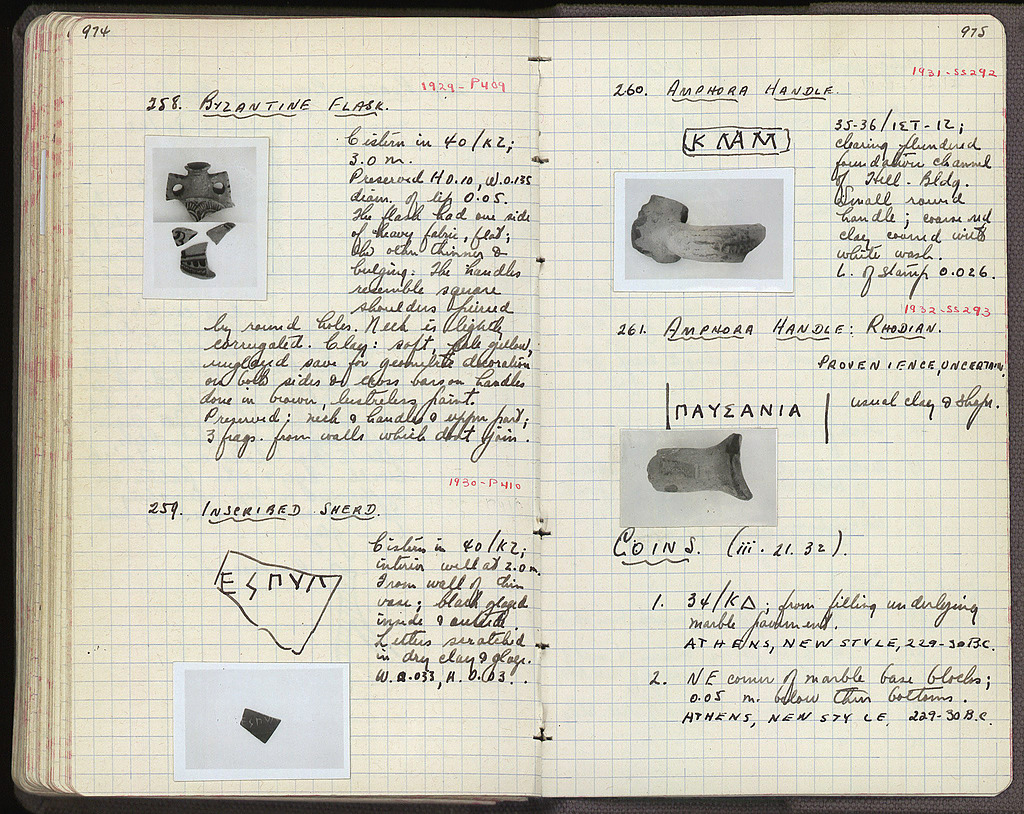 974
1929-P409
258. BYZANTINE FLASK.
Cistern in 40/ΚΖ;
3.0 m.
Preserved H 0.10, W. 0.135
diam. of lip 0.05.
The flask had one side
of heavy fabric, flat;
the other thinner &
bulging. The handles
resemble square
shoulders pierced
by round holes. Neck is lightly
corrugated. Clay: soft, pale yellow,
unglazed save for geometric decoration
on both sides & cross bars on handles
done in brown, lustreless paint.
Preserved: neck & handles & upper part;
3 frags. from walls which don't join.
1930-P410
259. INSCRIBED SHERD.
ΕϟΠΥΠ
Cistern in 40/ΚΖ;
interior well at 2.0 m.
From wall of thin
vase; black glazed
inside & outside.
Letters scratched
in dry clay & glaze.
W. 0.033, H. 0.03.
975
1931-SS292
260. AMPHORA HANDLE.
35-36/ΙΣΤ-12;
clearing plundered
foundation channel
of Hell. Bldg.
Small round
handle; coarse red
clay covered with
white wash.
L. of Stamp 0.026.
1932-SS293
261. AMPHORA HANDLE: RHODIAN.
PROVENIENCE, UNCERTAIN.
ΠΑΥΣΑΝΙΑ
usual clay & shape.
COINS. (iii. 21. 32).
1. 34/ΚΔ; from filling underlying
marble pavement.
ATHENS, NEW STYLE, 229-30 B.C.
2. NE corner of marble base blocks;
0.05 m. below their bottoms.
ATHENS, NEW STYLE, 229-30 B.C.